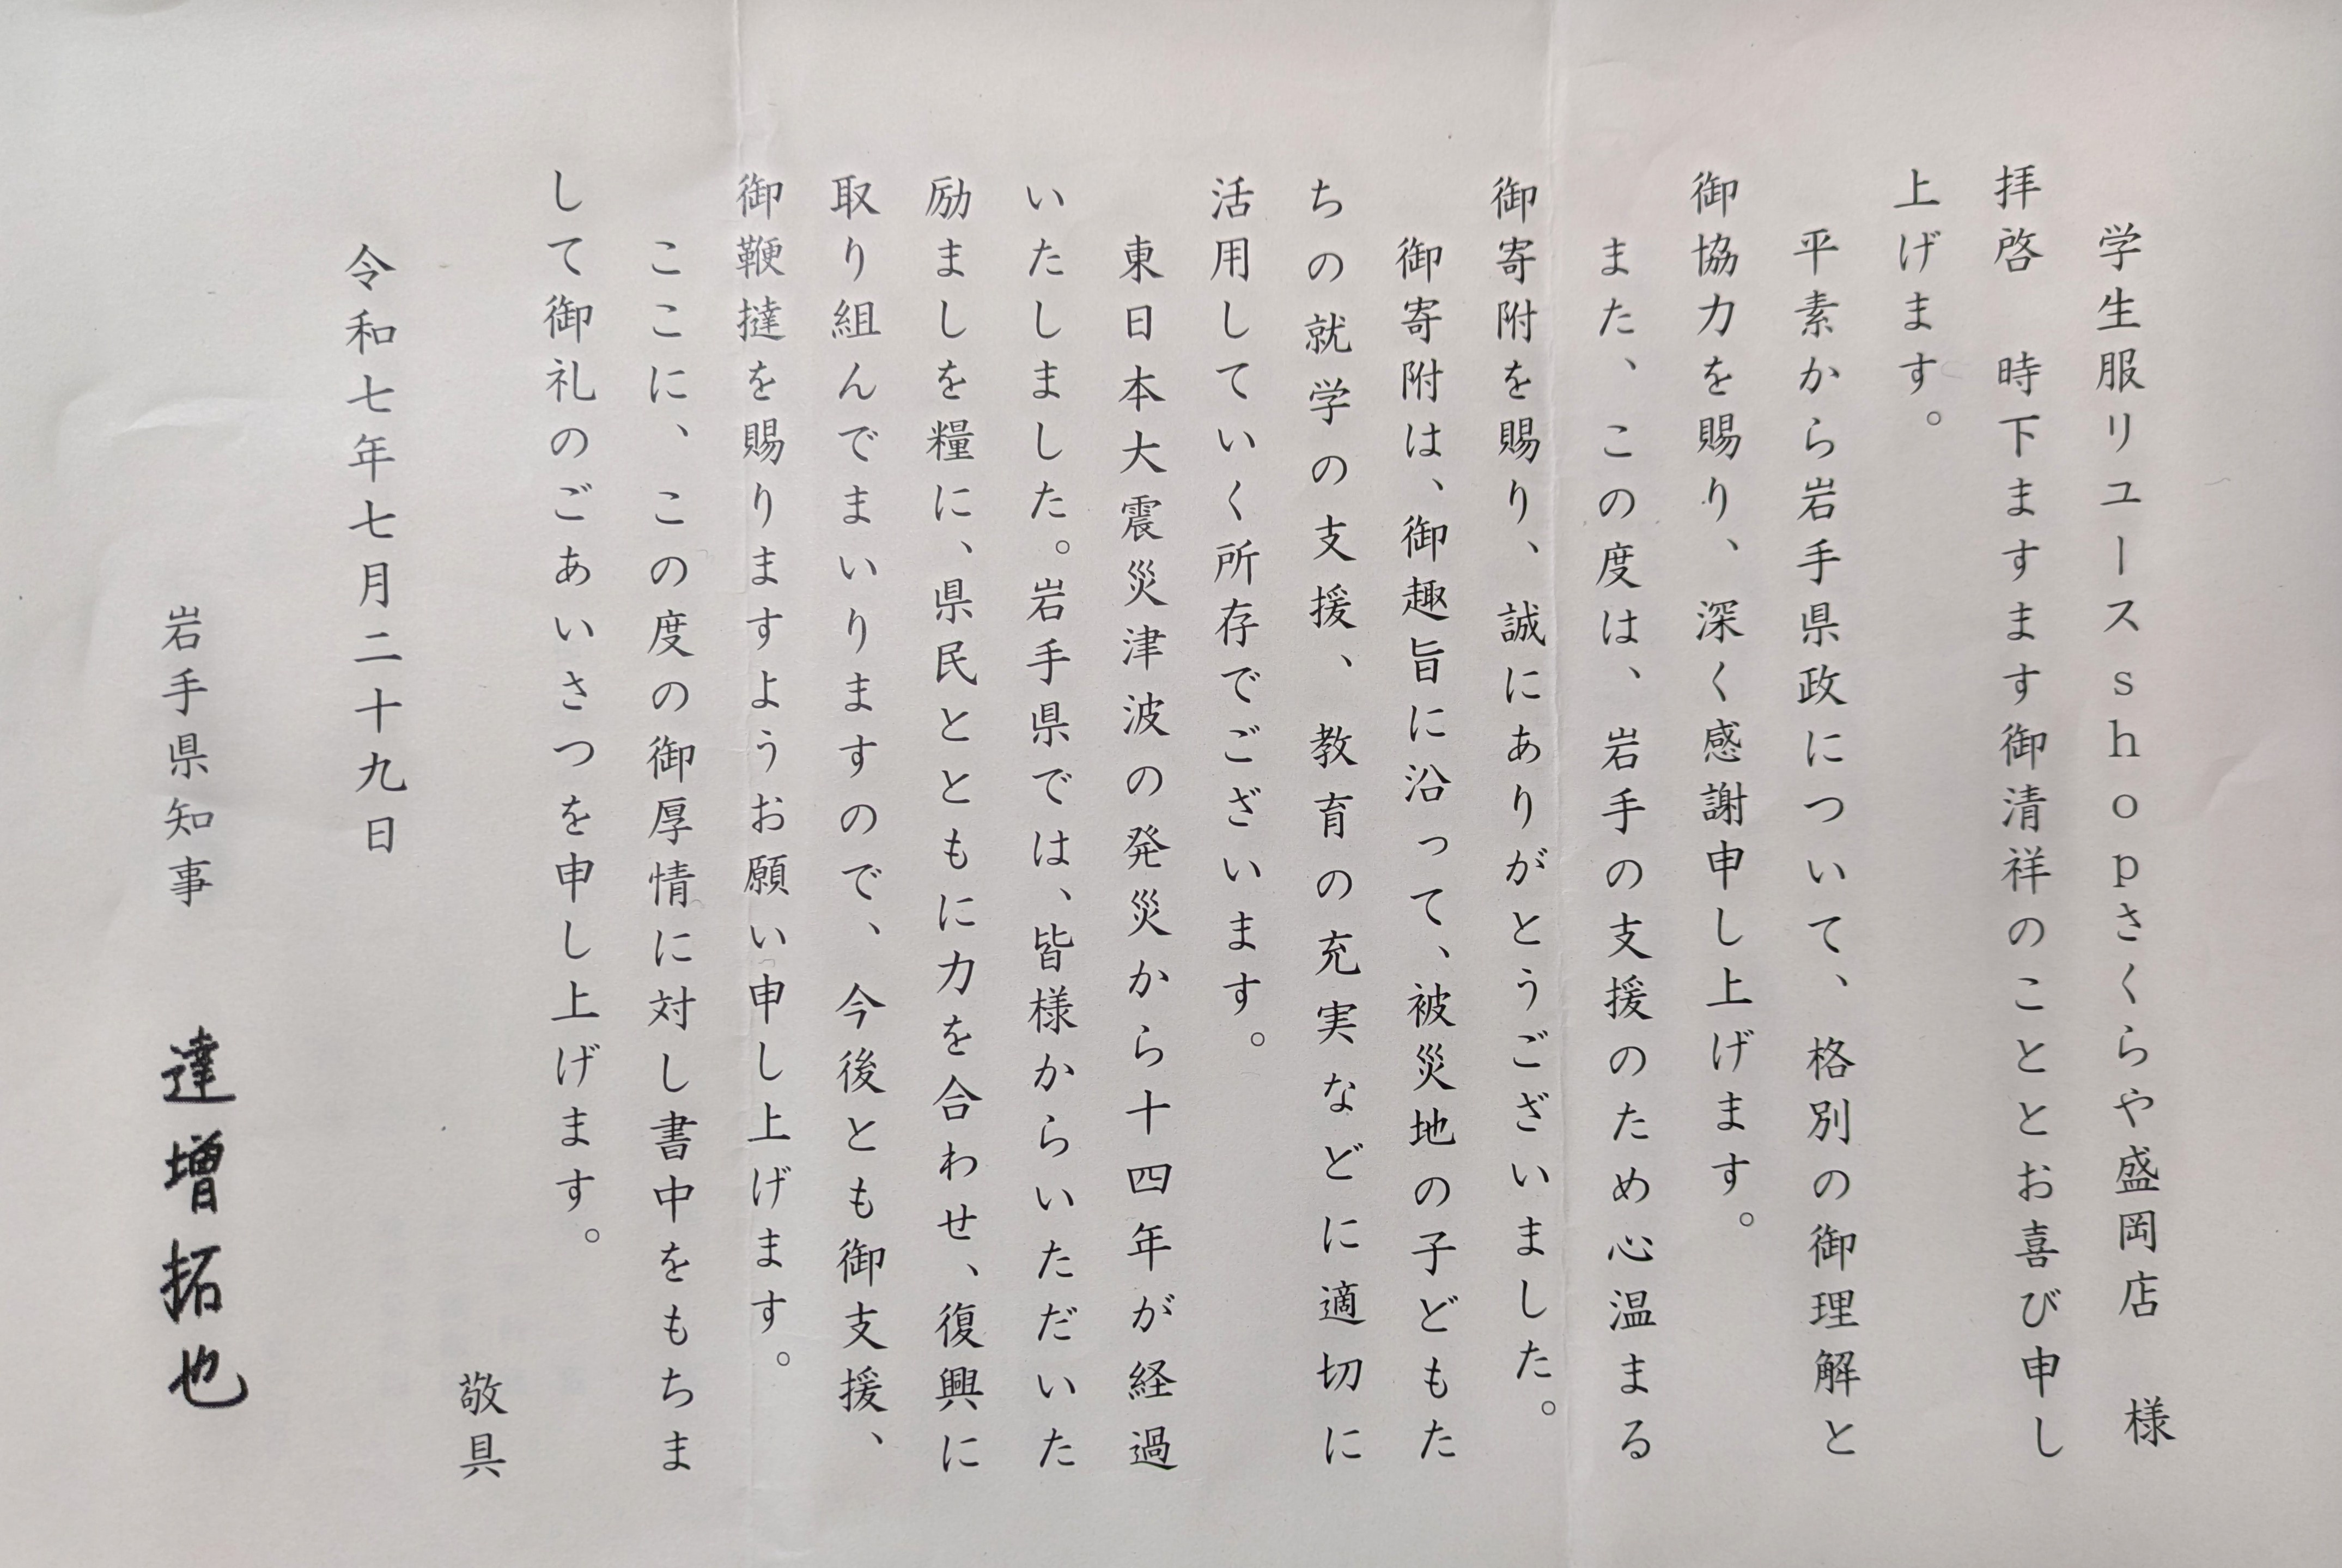 学生服リユースshopさくらや盛岡店　様
拝啓　時下ますます御清祥のこととお喜び申し
上げます。
平素から岩手県政について、格別の御理解と
御協力を賜り、深く感謝申し上げます。
また、この度は、岩手の支援のため心温まる
御寄附を賜り、誠にありがとうございました。
御寄附は、御趣旨に沿って、被災地の子どもた
ちの就学の支援、教育の充実などに適切に
活用していく所存でございます。
東日本大震災津波の発災から十四年が経過
いたしました。岩手県では、皆様からいただいた
励ましを糧に、県民とともに力を合わせ、復興に
取り組んでまいりますので、今後とも御支援、
御鞭撻を賜りますようお願い申し上げます。
ここに、この度の御厚情に対し書中をもちま
して御礼のごあいさつを申し上げます。
敬具
令和七年七月二十九日
岩手県知事　達増拓也